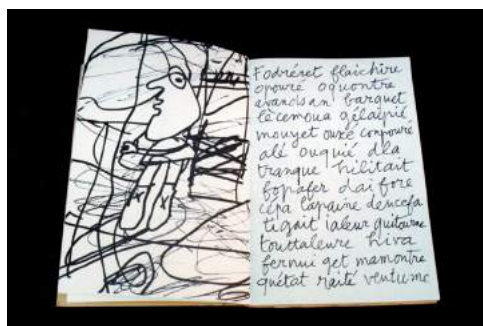 Fodréret flaichire
opouré oquontre
avancisan barquet
lécemoua gélaipié
mouyet ouvé conpouré
alé ouquié dla
tranque hilitait
fopafer dai fore
cépa lapaine dencefa
tigait laleur quitourne
touttaleure hiva
fernui get mamontre
quétat raité ventume